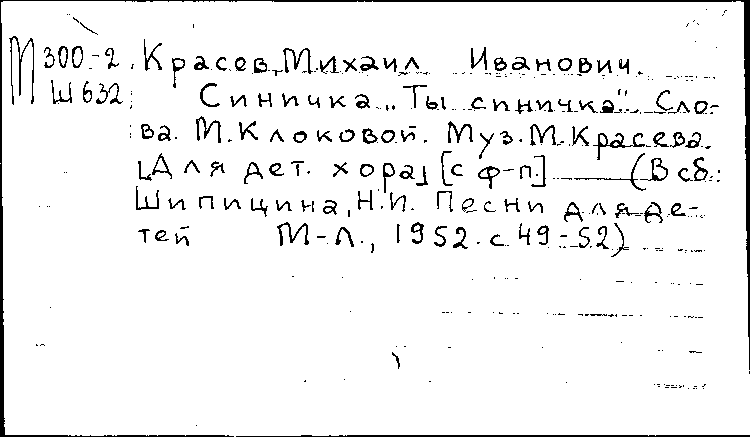 М 300-2. Красев, Михаил Иванович.
Ш632 Синичка „Ты синичка“. Сло-
ва. М. Клоковой. Муз. М. Красева.
[Для дет. хора] [с ф-п.] (В сб.:
Шипицина, Н.И. Песни для де-
тей М-Л., 1952. с 49-52)